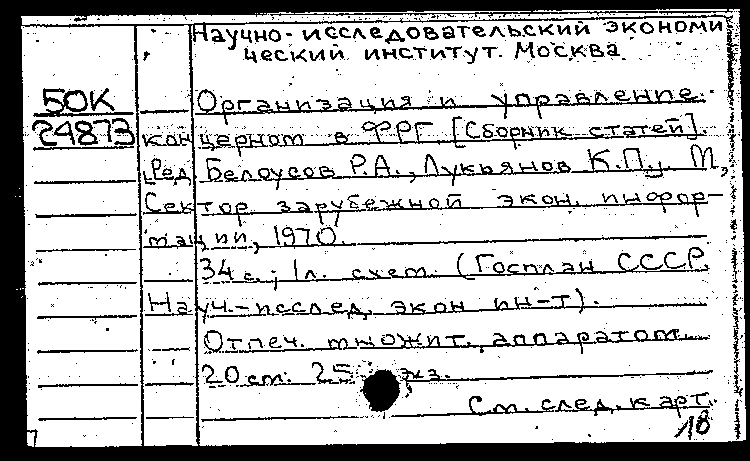 Научно-исследовательский экономи
ческий институт. Москва
50К
24873
Организация и управление
концерном в ФРГ. [Сборник статей].
[Ред. Белоусов Р.А., Лукьянов К.П.] М.,
Сектор зарубежной экон. инфор-
мации, 1970.
34 с.; 1 л. схем. (Госплан СССР.
Науч.-исслед. экон ин-т).
Отпеч. множит. аппаратом.
20 см. 25 экз.
См. след. карт.
18